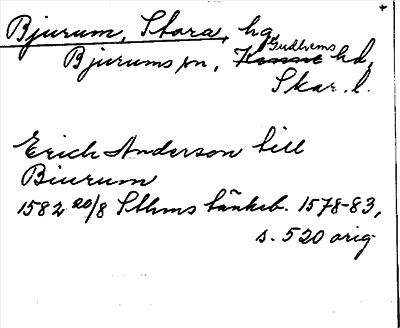 Bjurum, Stora, hg
Bjurums sn, Gudhems hd,
Skar. l.
Erich Anderson till
Biurum
1582 20/8 Sthms tänkeb. 1578-83,
s. 520 orig